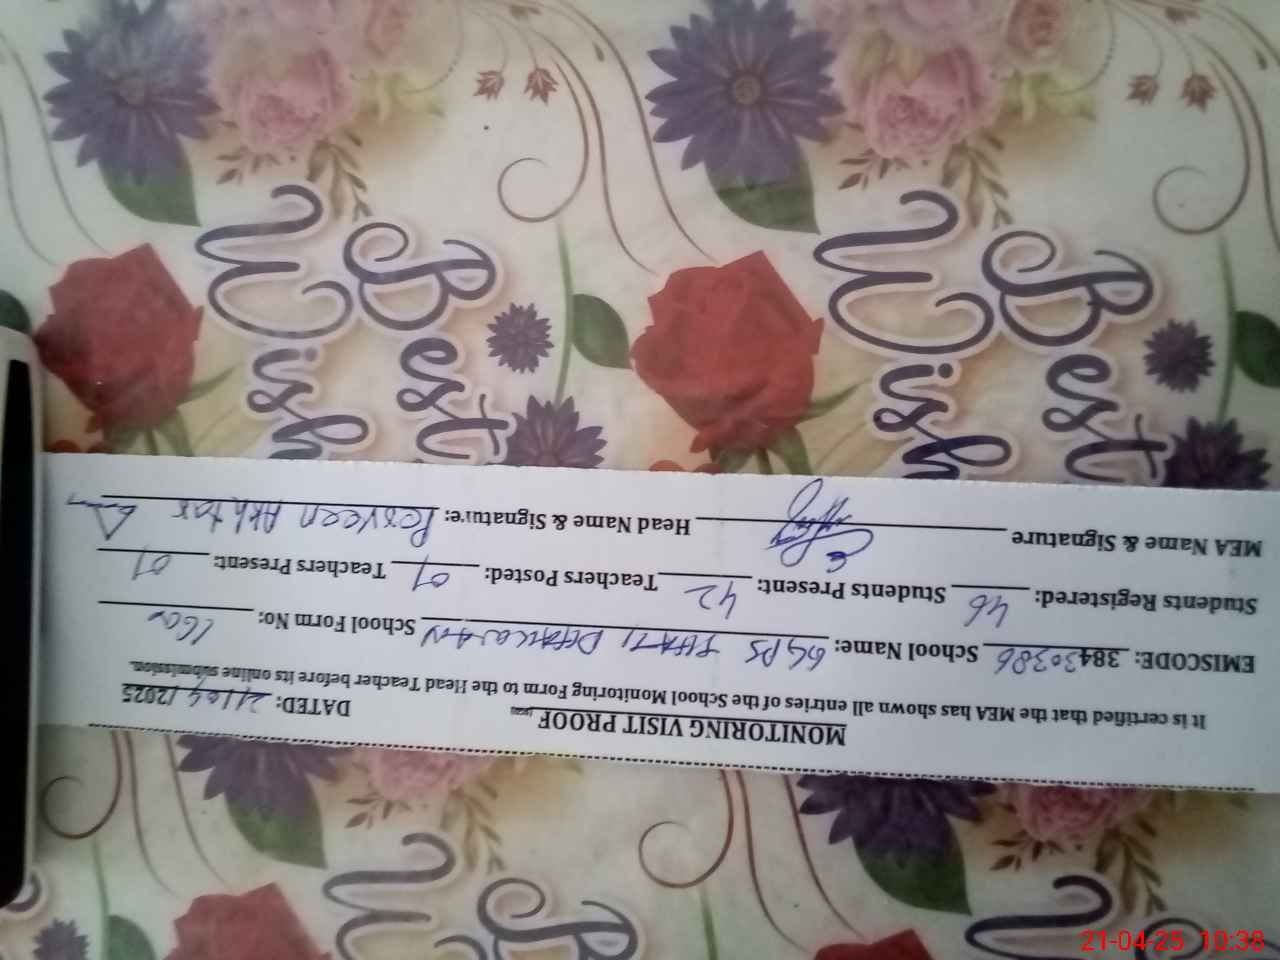 MONITORING VISIT PROOF
DATED: 21/04/2025
It is certified that the MEA has shown all entries of the School Monitoring Form to the Head Teacher before its online submission.
EMISCODE: 38430386 School Name: GGPS School Form No:
Students Registered: 46 Students Present: 42 Teachers Posted: 01 Teachers Present: 01
MEA Name & Signature Head Name & Signature: Perveen Akhtar
Best Wish
Best Wish
Best
21-04-25 10:38